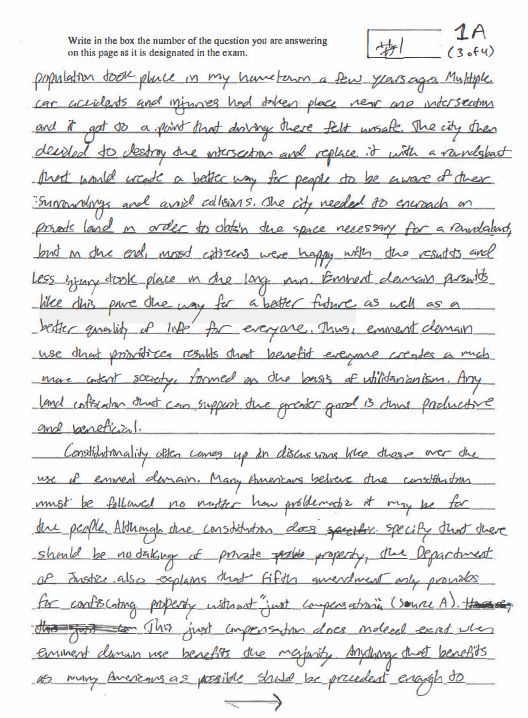 Write in the box the number of the question you are answering
on this page as it is designated in the exam.
#1
1A
(3 of 4)
population took place in my hometown a few years ago. Multiple
car accidents and injuries had taken place near one intersection
and it got to a point that driving there felt unsafe. The city then
decided to destroy the intersection and replace it with a roundabout
that would create a better way for people to be aware of their
surroundings and avoid collisions. The city needed to encroach on
private land in order to obtain the space necessary for a roundabout,
but in the end, most citizens were happy with the results and
less injury took place in the long run. Eminent domain pursuits
like this pave the way for a better future as well as a
better quality of life for everyone. Thus, eminent domain
use that prioritizes results that benefit everyone creates a much
more content society, formed on the basis of utilitarianism. Any
land confiscation that can support the greater good is thus productive
and beneficial.
Constitutionality often comes up in discussions like these over the
use of eminent domain. Many Americans believe the constitution
must be followed no matter how problematic it may be for
the people. Although the constitution does specify that there
should be no taking of private property, the Department
of Justice also explains that Fifth amendment only provides
for confiscating property without "just compensation" (Source A).
This just compensation does indeed exist when
eminent domain use benefits the majority. Anything that benefits
as many Americans as possible should be precedent enough to